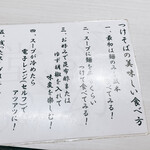 つけそばの美味しい食べ方
一、最初は麺のみ
食べてみる!
二、スープに麺を
つけて食べてみる!
三、お好みで昆布酢または
ゆず胡椒を入れて
味変を楽しむ!
四、スープが冷めたら
電子レンジ(セルフ)で
アツアツに!